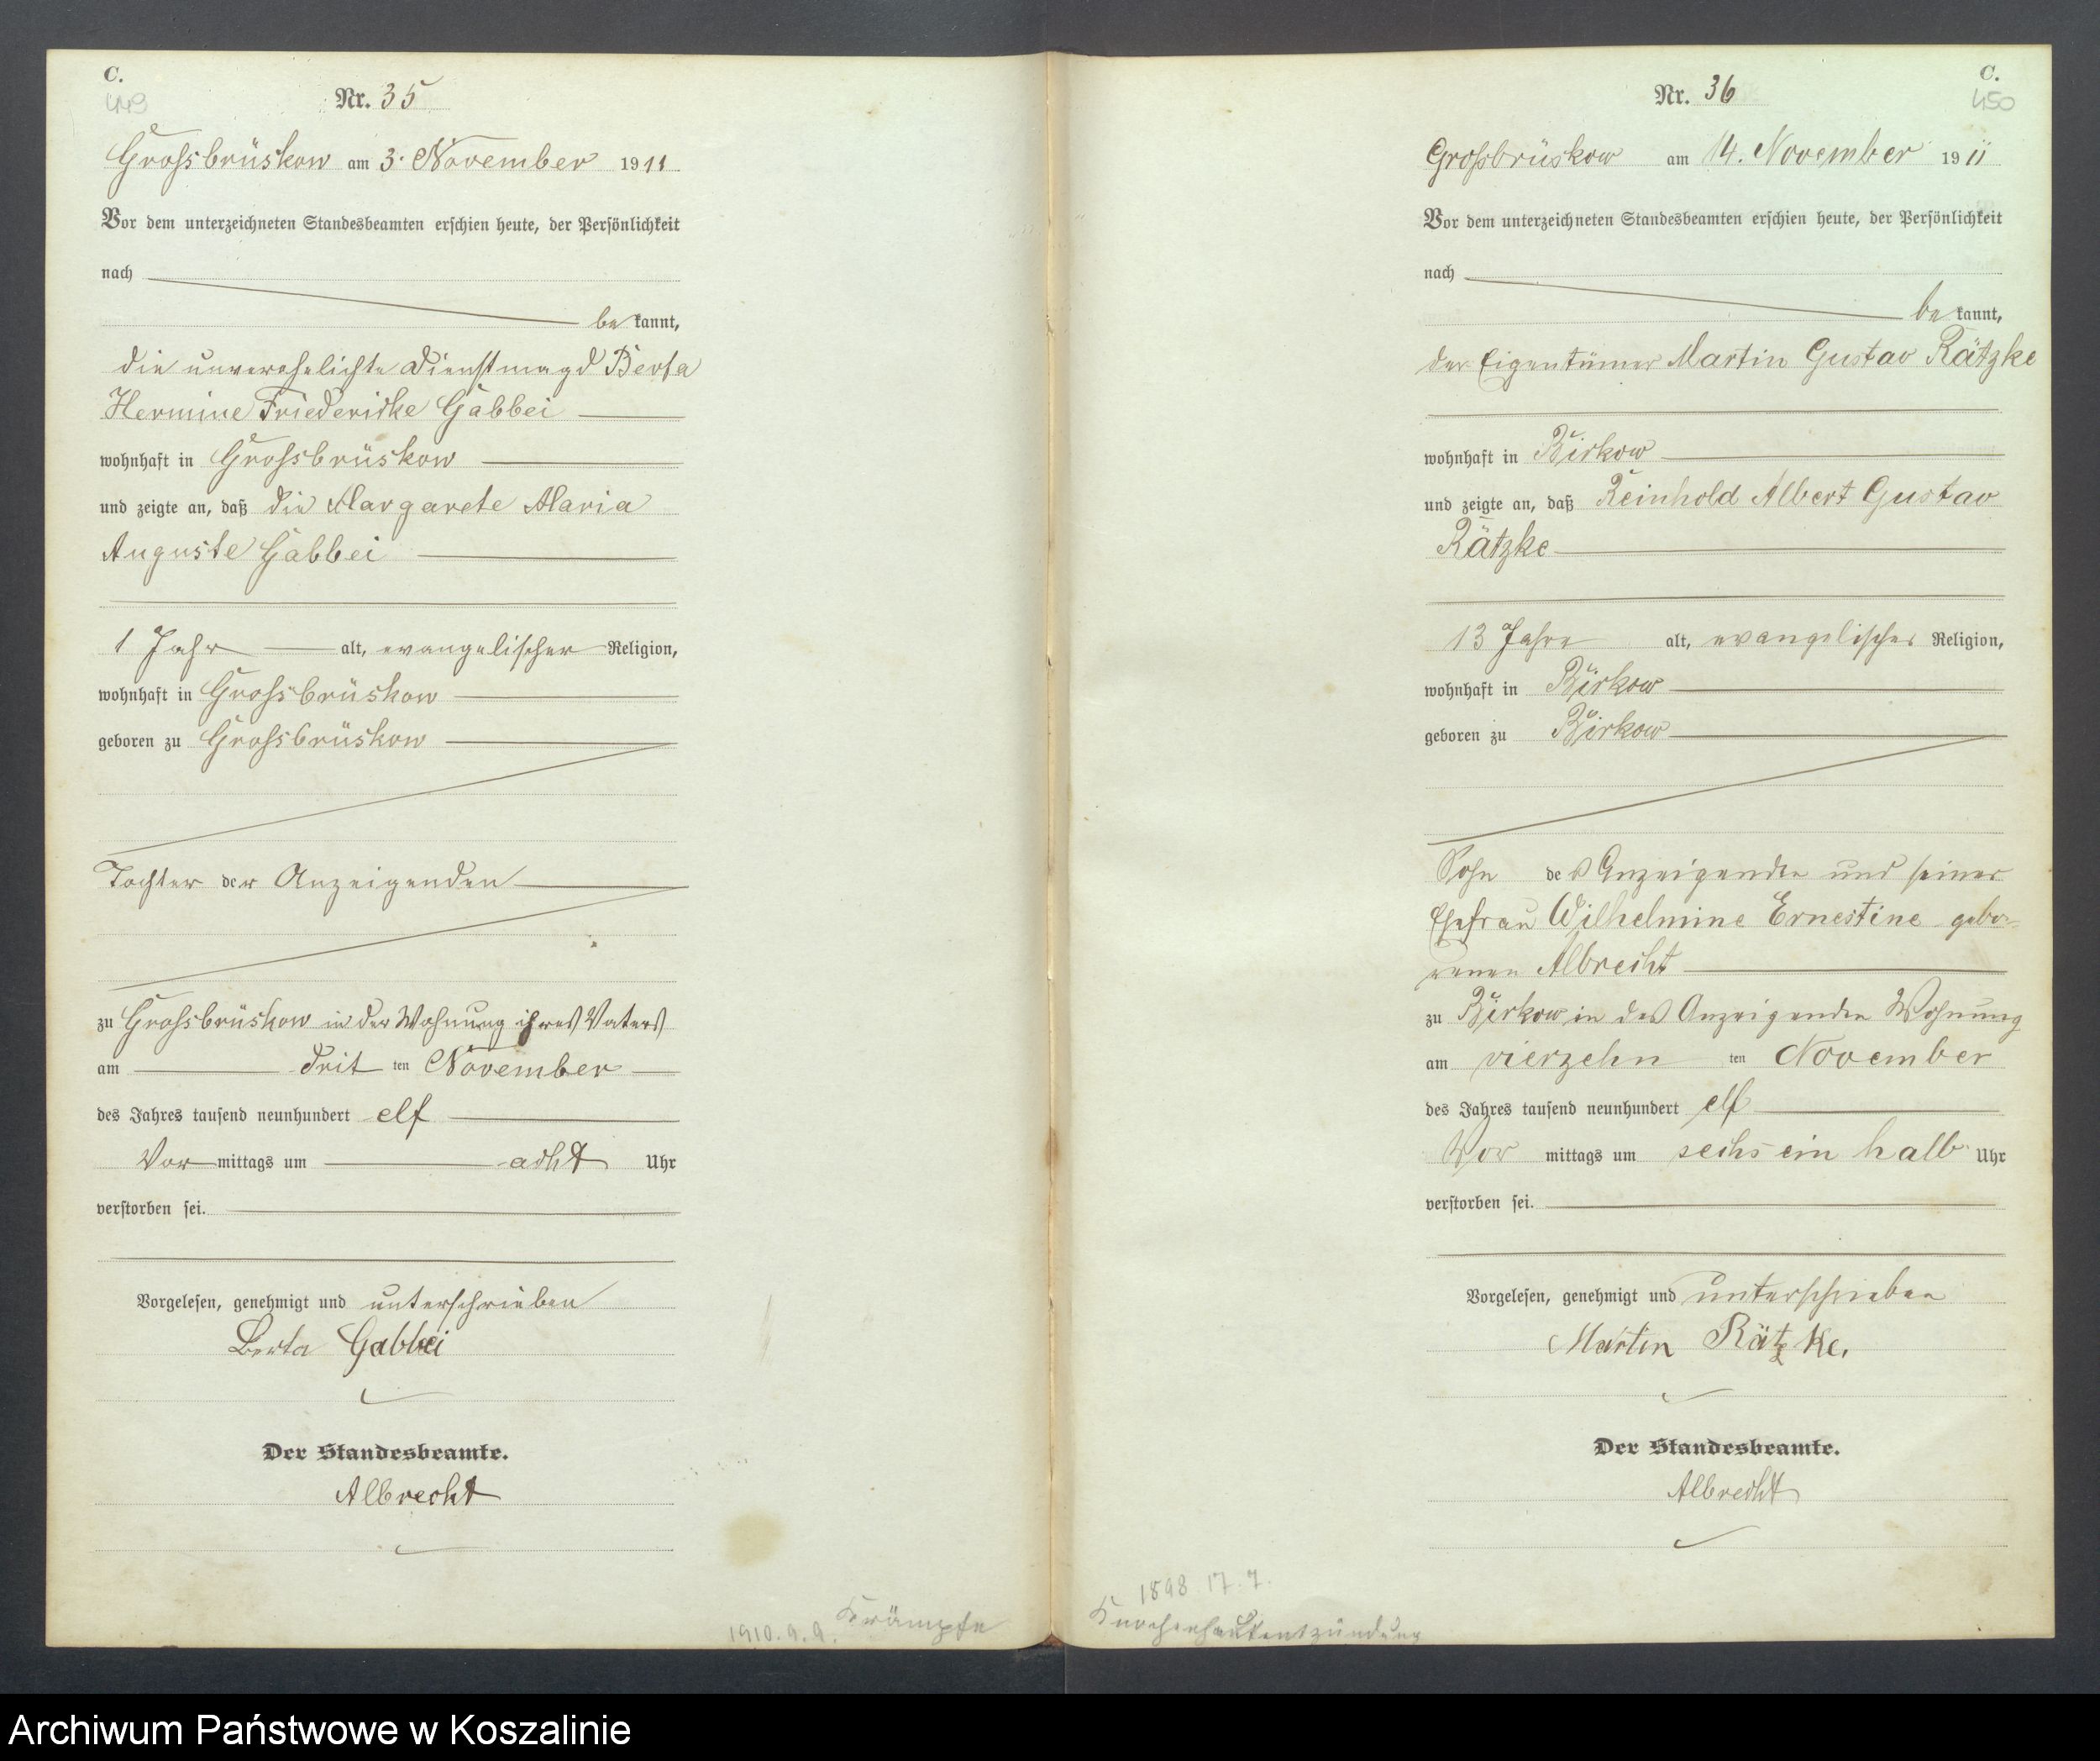 C.
449
Nr. 35
Grossbrüskow am 3. November 1911
Vor dem unterzeichneten Standesbeamten erschien heute, der Persönlichkeit
nach
be kannt,
die unverehelichte Dienstmagd Berta
Hermine Friedericke Gabbei
wohnhaft in Grossbrüskow
und zeigte an, daß die Margarete Maria
Auguste Gabbei
1 Jahr alt, evangelischer Religion,
wohnhaft in Grossbrüskow
geboren zu Grossbrüskow
Tochter der Anzeigenden
zu Grossbrüskow in der Wohnung ihres Vaters
am drit ten November
des Jahres tausend neunhundert elf
Vor mittags um acht Uhr
verstorben sei.
Vorgelesen, genehmigt und unterschrieben
Berta Gabbei
Der Standesbeamte.
Albrecht
1910. 9. 9. Krämpfe
C.
450
Nr. 36
Grossbrüskow am 14. November 1911
Vor dem unterzeichneten Standesbeamten erschien heute, der Persönlichkeit
nach
be kannt,
der Eigentümer Martin Gustav Rätzke
wohnhaft in Birkow
und zeigte an, daß Reinhold Albert Gustav
Rätzke
13 Jahre alt, evangelischer Religion,
wohnhaft in Birkow
geboren zu Birkow
Sohn des Anzeigenden und seiner
Ehefrau Wilhelmine Ernestine gebo-
renen Albrecht
zu Birkow in des Anzeigenden Wohnung
am vierzehn ten November
des Jahres tausend neunhundert elf
Vor mittags um sechs ein halb Uhr
verstorben sei.
Vorgelesen, genehmigt und unterschrieben
Martin Rätzke.
Der Standesbeamte.
Albrecht
1898. 17. 7.
Knochenhautentzündung
Archiwum Państwowe w Koszalinie